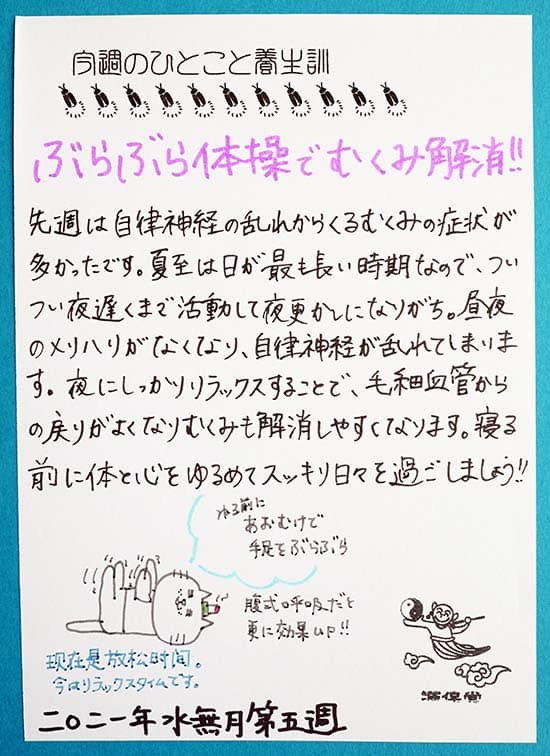 今週のひとこと養生訓
ぶらぶら体操でむくみ解消!!
先週は自律神経の乱れからくるむくみの症状が
多かったです。夏至は日が最も長い時期なので、つい
つい夜遅くまで活動して夜更かしになりがち。昼夜
のメリハリがなくなり、自律神経が乱れてしまいま
す。夜にしっかりリラックスすることで、毛細血管から
の戻りがよくなりむくみも解消しやすくなります。寝る
前に体と心をゆるめてスッキリ日々を過ごしましょう!!
ねる前に
あおむけで
手足をぶらぶら
腹式呼吸だと
更に効果UP!!
现在是放松时间。
今はリラックスタイムです。
満保堂
二〇二一年水無月第五週